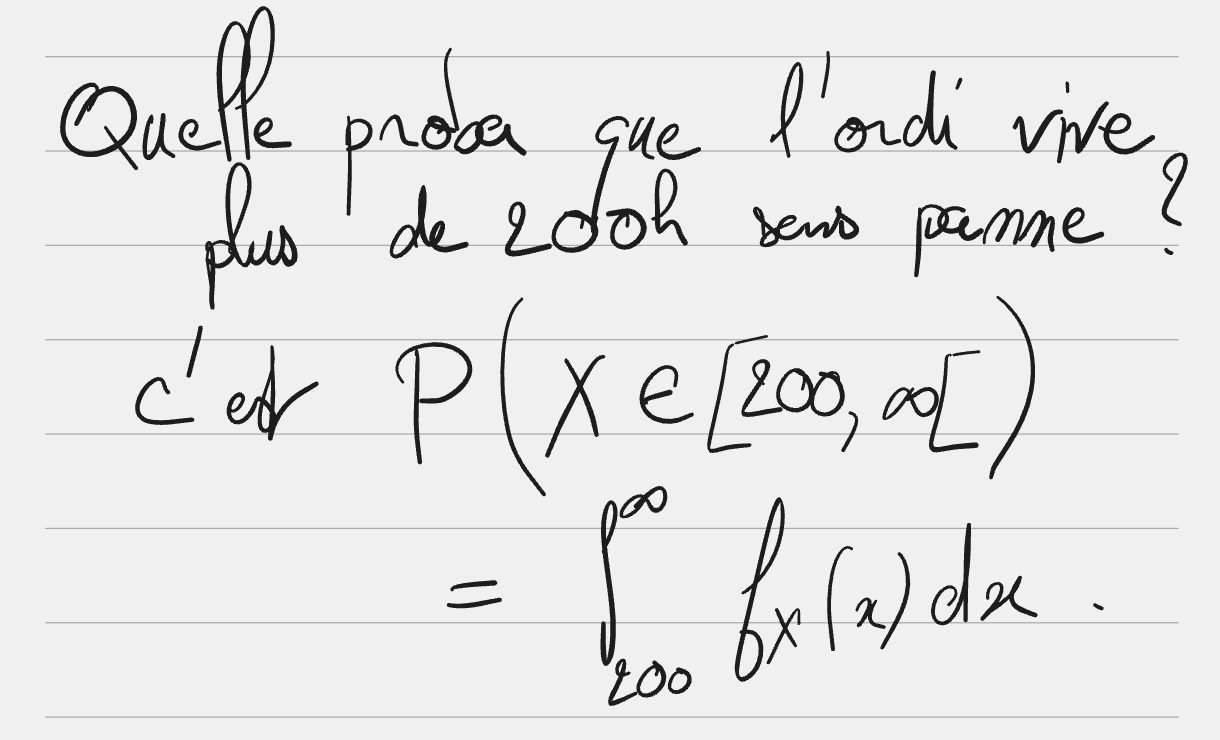 Quelle proba que l'ordi vive
plus de 200h sans panne ?
c'est P(X ∈ [200, ∞[)
= ∫_{200}^{∞} f_X(x) dx .